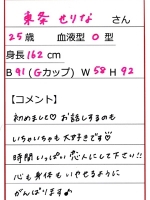 東条 せりな さん
25歳 血液型 O型
身長162cm
B 91(Gカップ) W 58 H 92
【コメント】
初めまして♡お話しするのも
いちゃいちゃも大好きです♡
時間いっぱい恋人にして下さい!!
心も身体もいやせるように
がんばります♪